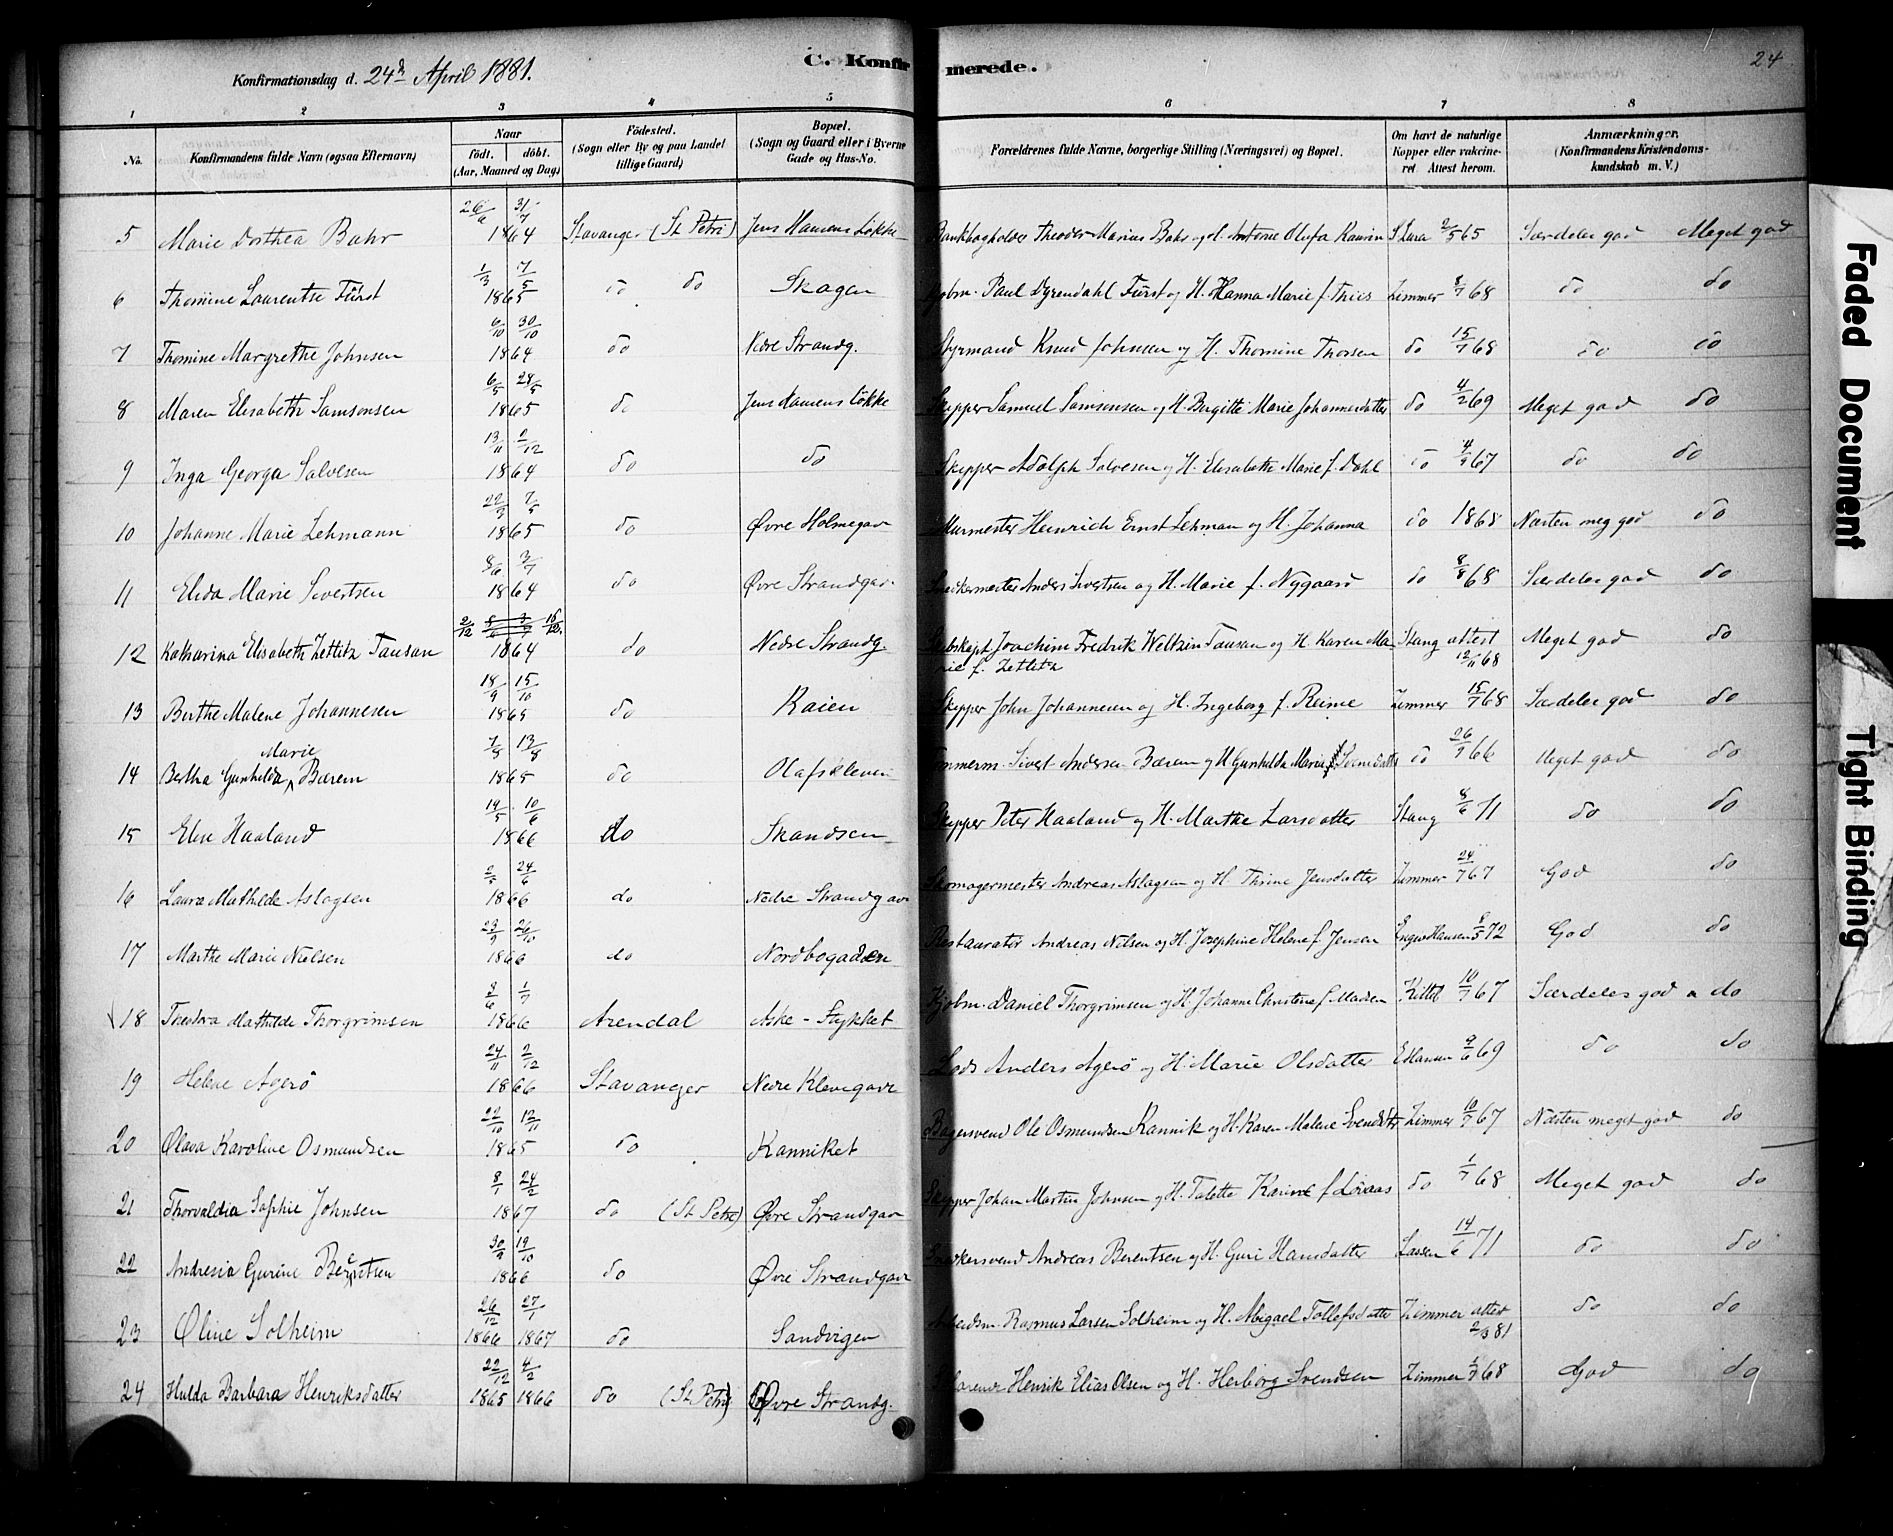 Konfirmationsdag d. 24de April 1881.
C. Konfirmerede.
24
1 2 3 4 5 6 7 8
No. Konfirmandens fulde Navn (ogsaa Efternavn) Naar födt. döbt. (Aar, Maaned og Dag) Födested. (Sogn eller By og paa Landet tillige Gaard) Bopæl. (Sogn og Gaard eller i Byerne Gade og Hus-No. Forældrenes fulde Navne, borgerlige Stilling (Næringsvei) og Bopæl. Om havt de naturlige Kopper eller vakcineret Attest herom. Anmærkninger. (Konfirmandens Kristendomskundskab m. V.)
5 Marie Dorthea Bahr 26/6 31/7 1864 Stavanger (St Petri) Jens Hansens Løkke Bankbogholder Theodor Marius Bahr og H. Antonie Olufa 2/5 65 Særdeles god Meget god
6 Thomine Laurentse Fürst 1/3 7/5 1865 do do Skagen Kjøbm. Paul Dyrendahl Fürst og H. Hanna Marie f. Thiis Zimmer 8/7 68 do do
7 Thomine Margrethe Johnsen 6/10 30/10 1864 do Nedre Strandg. Styrmand Knud Johnsen og H. Thomine Thorsen do 15/7 68 do do
8 Maren Elisabeth Samsonsen 6/5 28/5 1865 do Jens Hansens Løkke Skipper Samuel Samsonsen og H. Birgitte Marie Johannesdatter do 4/2 69 Meget god do
9 Inga Georga Salvesen 13/11 2/12 1864 do do Skipper Adolph Salvesen og H. Elisabeth Marie f. Dahl do 4/9 67 do do
10 Johanne Marie Lehmann 1865 do Øvre Holmegar Murmester Heinrich Ernst Lehman og H. Johanna do 1868 Næsten meg god do
11 Elida Marie Sivertsen 8/6 3/7 1864 do Øvre Strandgar. Snedkermester Anders Sivertsen og H. Marie f. Nygaard do 8/8 68 Særdeles god do
12 Katharina Elisabeth Zetlitz Tausan 2/12 1864 do Nedre Strandg. Joachim Fredrik Weltzin Tausan og H. Karen Marie f. Zetlitz Stang attest 12/11 68 Meget god do
13 Berthe Malene Johannesen 18/9 15/10 1865 do Kaien Skipper John Johannesen og H. Ingeborg f. Reime Zimmer 15/7 68 Særdeles god do
14 Bertha Gunhilda Marie Bærem 13/8 1865 do Olafskleven Tømmerm. Sivert Andersen Bærem og H. Gunhilda Marie do 26/9 66 Meget god do
15 Elen Haaland 14/5 10/6 1866 do Skandsen Skipper Peter Haaland og H. Marthe Larsdatter Stang 8/6 71 do do
16 Laura Mathilde Aslagsen 24/6 1866 do Nedre Strandgar Skomagermester Andreas Aslagsen og H. Thrine Jensdatter Zimmer 24/7 67 God do
17 Marthe Marie Nielsen 23/9 26/10 1866 do Nordbogaden Restauratør Andreas Nilsen og H. Josephine Helene f. Jensen 72 God do
18 Theodora Mathilde Thorgrimsen 8/6 1/7 1866 Arendal Aske-Stykket Kjøbm. Daniel Thorgrimsen og H. Johanne Christine f. Madsen Kittel 10/7 67 Særdeles god do
19 Helene Agerö 24/11 2/12 1866 Stavanger Nedre Klevegade Lods Anders Agerö og H. Marie Olsdatter E Hansen 9/6 69 do do
20 Olava Karoline Osmundsen 22/10 12/11 1865 do Kanniket Bagersvend Ole Osmundsen Kannik og H. Karen Malene Svendsdtr Zimmer 10/7 67 Næsten meget god do
21 Thorvaldia Sophie Johnsen 8/1 24/2 1867 do (St Petri) Øvre Strandgar Skipper Johan Martin Johnsen og H. Talette Karine f. do 1/7 68 Meget god do
22 Andresia Gurine Berntsen 30/9 19/10 1866 do Øvre Strandgar Snedkersvend Andreas Berentsen og H. Guri Hansdatter Lassen 14/6 71 do do
23 Oline Solheim 26/12 1866 27/1 1867 do Sandvigen Arbeidsm. Rasmus Larsen Solheim og H. Abigael Tollefsdatter Zimmer attest 2/3 81 do do
24 Hulda Barbara Henriksdatter 22/12 1865 4/2 1866 do (St Petri) Øvre Strandg. Henrik Elias Olsen og H. Herborg Svendsen Zimmer 68 God do
Faded Document
Tight Binding